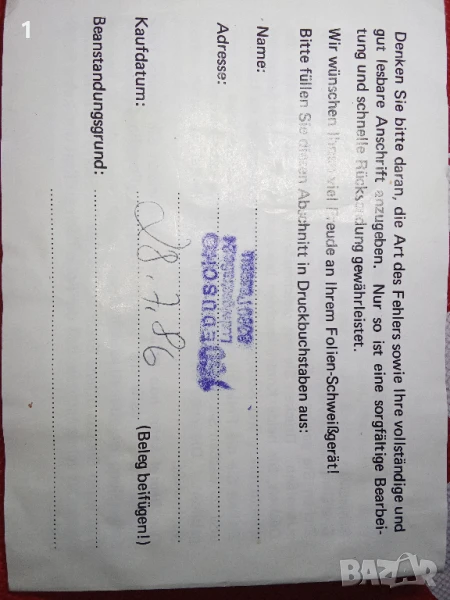 Denken Sie bitte daran, die Art des Fehlers sowie Ihre vollständige und
gut lesbare Anschrift anzugeben. Nur so ist eine sorgfältige Bearbei-
tung und schnelle Rücksendung gewährleistet.
Wir wünschen Ihnen viel Freude an Ihrem Folien-Schweißgerät!
Bitte füllen Sie diesen Abschnitt in Druckbuchstaben aus:
Name:
Adresse:
Kaufdatum: 28.7.86 (Beleg beifügen!)
Beanstandungsgrund:
1
BAZAR